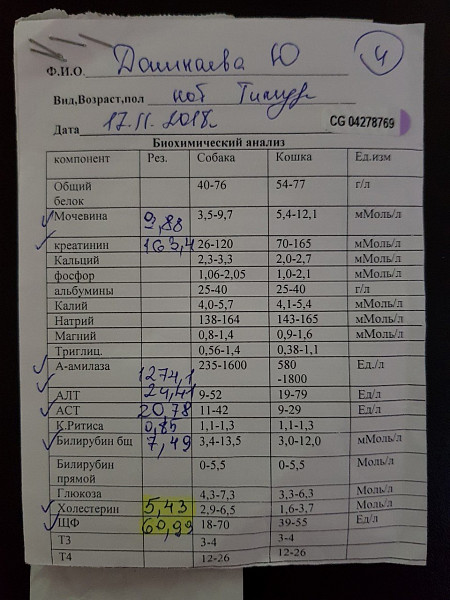 4
Ф.И.О. Ю
Вид,Возраст,пол кот
Дата 17.11.2018г. CG 04278769
Биохимический анализ
компонент Рез. Собака Кошка Ед.изм
Общий белок 40-76 54-77 г/л
Мочевина 9,88 3,5-9,7 5,4-12,1 мМоль/л
креатинин 163,4 26-120 70-165 мМоль/л
Кальций 2,3-3,3 2,0-2,7 мМоль/л
фосфор 1,06-2,05 1,0-2,1 мМоль/л
альбумины 25-40 25-40 г/л
Калий 4,0-5,7 4,1-5,4 мМоль/л
Натрий 138-164 143-165 мМоль/л
Магний 0,8-1,4 0,9-1,6 мМоль/л
Триглиц. 0,56-1,4 0,38-1,1
А-амилаза 1274,1 235-1600 580 -1800 Ед./л
АЛТ 24,41 9-52 19-79 Ед/л
АСТ 20,78 11-42 9-29 Ед/л
К.Ритиса 0,85 1,1-1,3 1,1-1,3
Билирубин бщ 7,49 3,4-13,5 3,0-12,0 мМоль/л
Билирубин прямой 0-5,5 0-5,5 Моль/л
Глюкоза 4,3-7,3 3,3-6,3 Моль/л
Холестерин 5,43 2,9-6,5 1,6-3,7 Моль/л
ЩФ 60,99 18-70 39-55 Ед/л
Т3 3-4 3-4
Т4 12-26 12-26